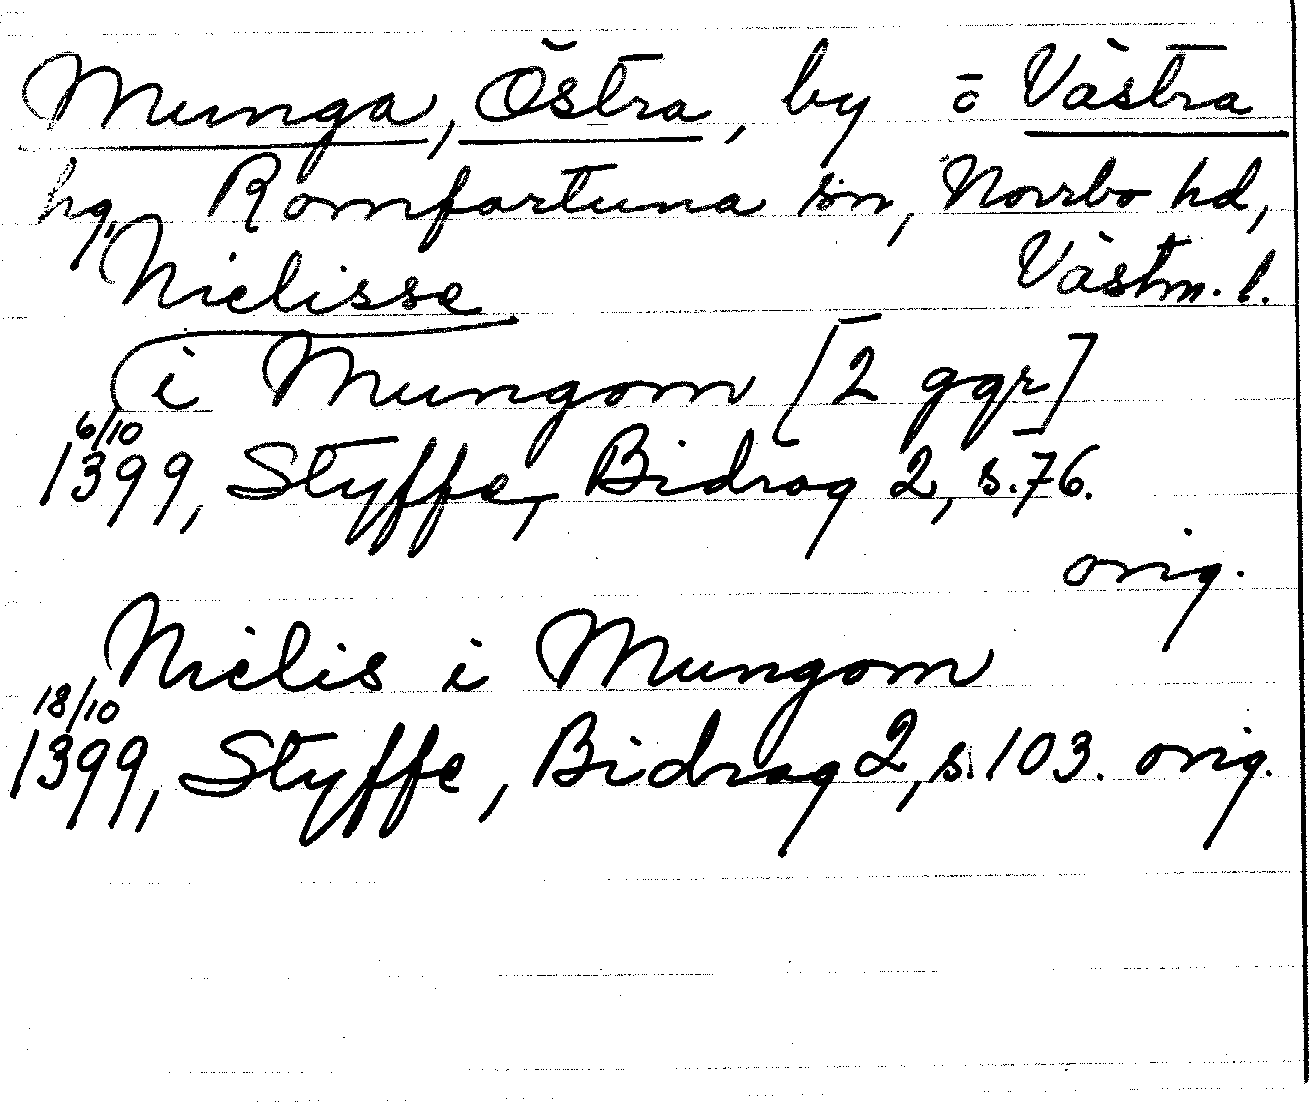 Munga, Östra, by o Västra
hg, Romfartuna sn, Norrbo hd,
Västm. l.
Nielisse
i Mungom [2 ggr]
6/10
1399, Styffe, Bidrag 2, s. 76.
orig.
Nielis i Mungom
18/10
1399, Styffe, Bidrag 2, s. 103. orig.